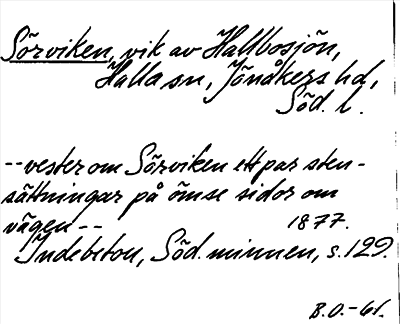 Sörviken, vik av Hallbosjön,
Halla sn, Jönåkers hd,
Söd. l.
-- vester om Sörviken ett par sten-
sättningar på ömse sidor om
vägen -- 1877.
Indebetou, Söd. minnen, s. 129.
B.O.-61.